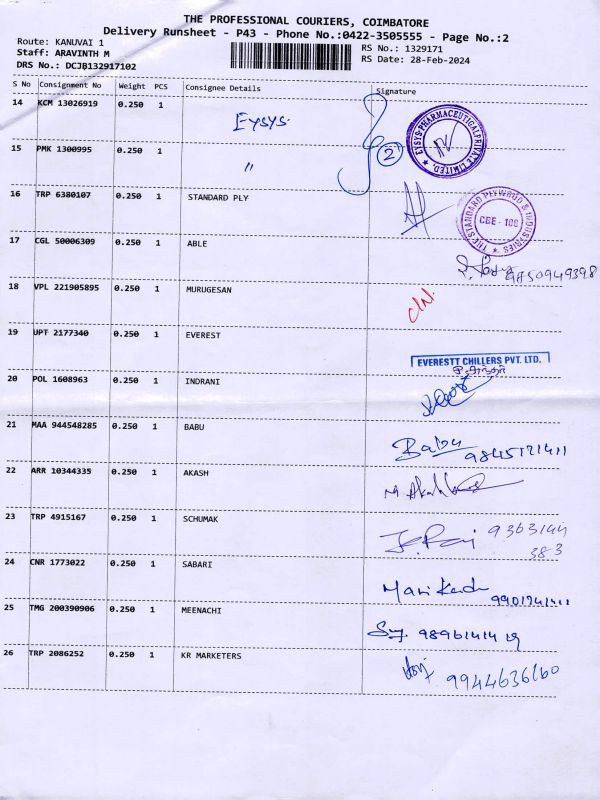 THE PROFESSIONAL COURIERS, COIMBATORE
Delivery Runsheet - P43 - Phone No.:0422-3505555 - Page No.:2
Route: KANUVAI 1
Staff: ARAVINTH M
DRS No.: DCJB132917102
RS No.: 1329171
RS Date: 28-Feb-2024
S No Consignment No Weight PCS Consignee Details Signature
14 KCM 13026919 0.250 1 EYSYS
EYSYS PHARMACEUTICAL PRIVATE LIMITED.
15 PMK 1300995 0.250 1 " 2
16 TRP 6380107 0.250 1 STANDARD PLY
THE STANDARD PLYWOOD & INDUSTRIES
CBE - 108
17 CGL 50006309 0.250 1 ABLE
9850949398
18 VPL 221905895 0.250 1 MURUGESAN
19 UPT 2177340 0.250 1 EVEREST
EVERESTT CHILLERS PVT. LTD.
20 POL 1608963 0.250 1 INDRANI
21 MAA 944548285 0.250 1 BABU
Babu
22 ARR 10344335 0.250 1 AKASH
23 TRP 4915167 0.250 1 SCHUMAK
24 CNR 1773022 0.250 1 SABARI
25 TMG 200390906 0.250 1 MEENACHI
26 TRP 2086252 0.250 1 KR MARKETERS
9944636160